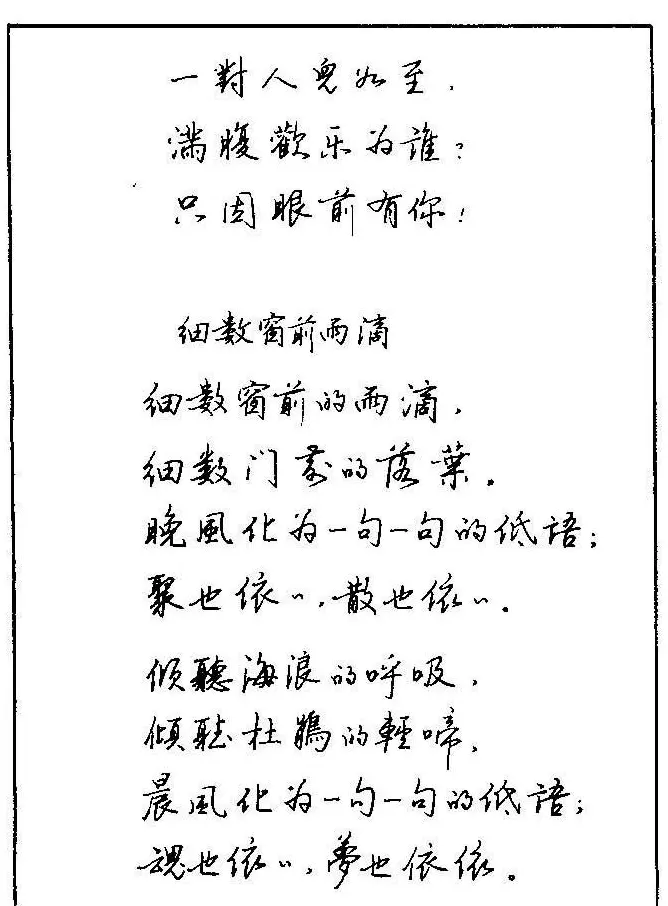 一對人兒如至，
满腹歡乐为誰？
只因眼前有你！
细数窗前雨滴
细数窗前的雨滴，
细数门前的落葉。
晚風化为一句一句的低語；
聚也依〃，散也依〃。
倾聽海浪的呼吸，
傾聽杜鵑的輕啼，
晨風化为一句一句的低語；
魂也依〃，夢也依依。